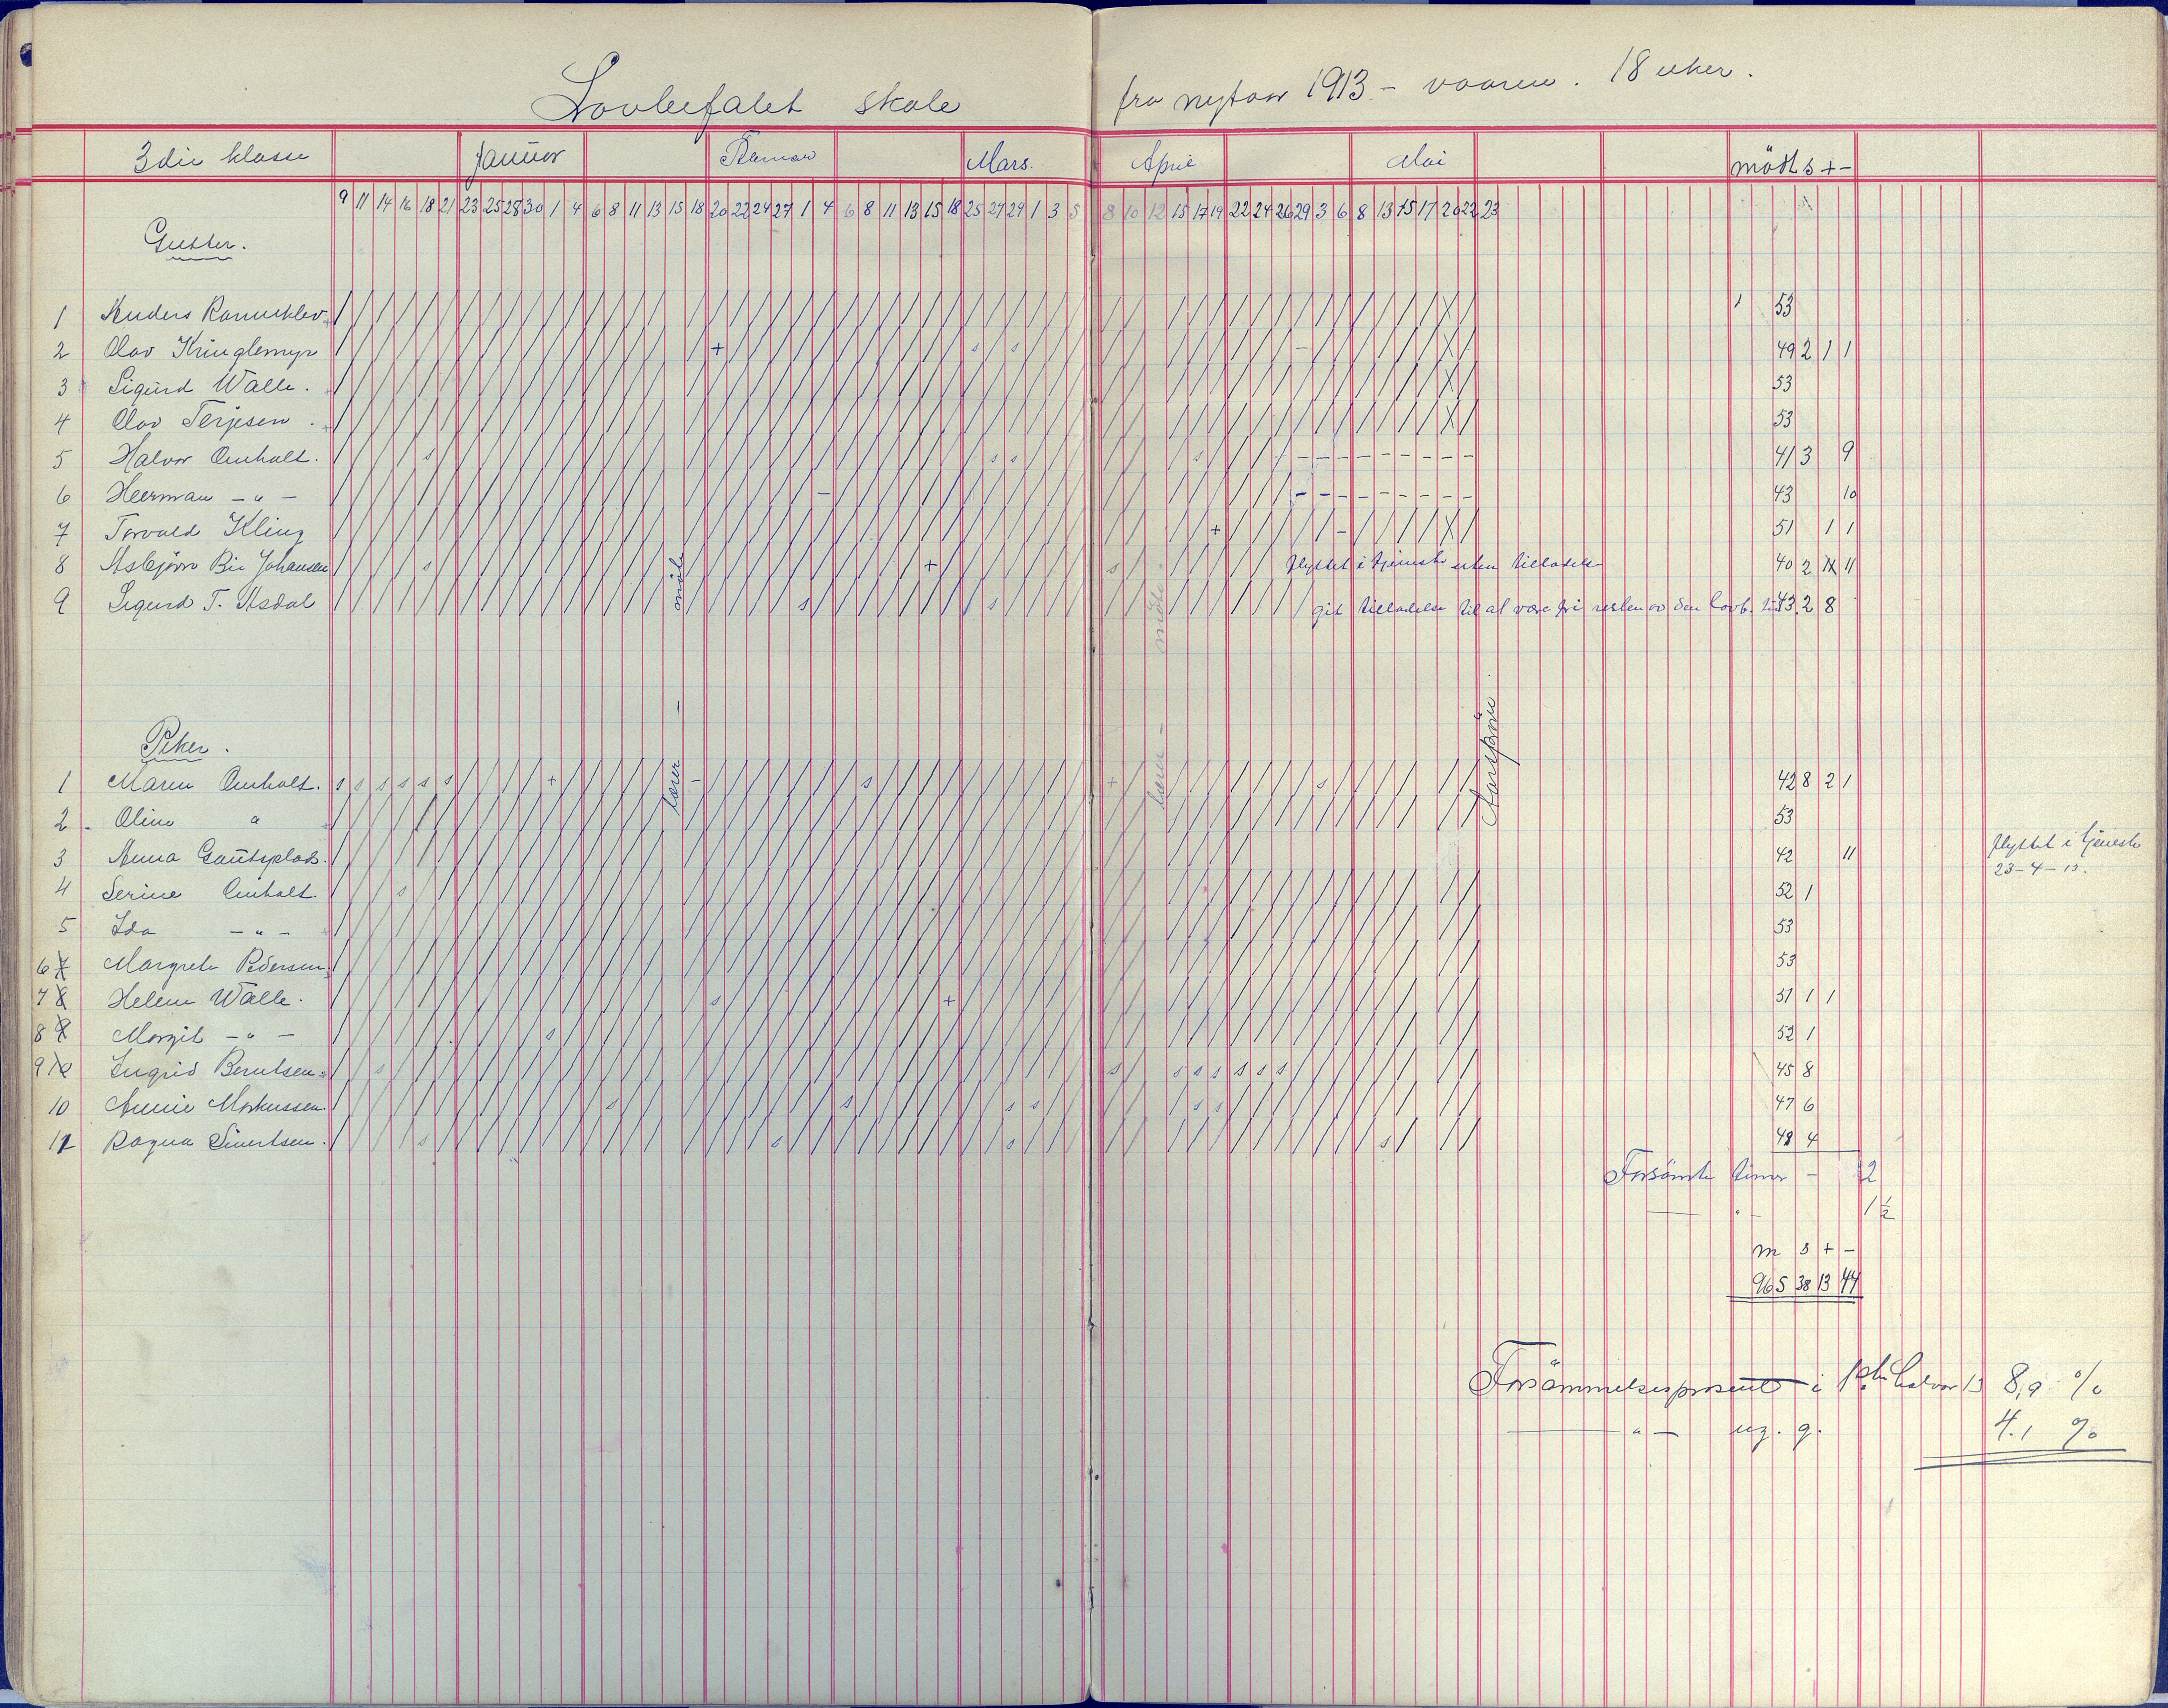 Lovbefalet skole fra nytaar 1913 - vaaren. 18 uker.
3die klasse Januar Februar Mars. April Mai mödt s + -
9 11 14 16 18 21 23 25 28 30 1 4 6 8 11 13 15 18 20 22 24 27 1 4 6 8 11 13 15 18 25 27 29 1 3 5 8 10 12 15 17 19 22 24 26 29 3 6 8 13 15 17 20 22 23
Gutter.
1 Anders 53
2 Olav Kringlemyr + s s - 49 2 1 1
3 Sigurd Walle. 53
4 Olav Terjesen. 53
5 Halvor Omholt. s s s s - - - - - - - - - 41 3 9
6 Heerman - " - - - - - - - - - - - 43 10
7 Torvald Kling + - 51 1 1
8 Asbjörn Bie Johansen s + s flyttet i tjeneste uten tilladelse 40 2 11
9 Sigurd T. Asdal s s git tilladelse til at være fri resten av den lovb. tid 43. 2 8
lærer - möte
lærer - möte.
Aarspröve
Piker.
1 Maren Omholt. s s s s s s + - s + s 42 8 2 1
2 Oline " 53
3 Anna Gautsplads. 42 11 flyttet i tjeneste
23-4-13.
4 Serine Omholt. s 52 1
5 Ida - " - 53
6 Margrete Pedersen 53
7 Helene Walle. s + 51 1 1
8 Margit - " - s 52 1
9 Ingrid Berntsen s s s s s s s s 45 8
10 Annie Markussen s s s s s s 47 6
11 Ragna Sivertsen. s s s s 48 4
Forsömte timer - 2
- " - 1 1/2
m s + -
965 38 13 44
Forsömmelsesprosent i 1ste halvaar 13 8,9 %
- " - ug. g. 4.1 %